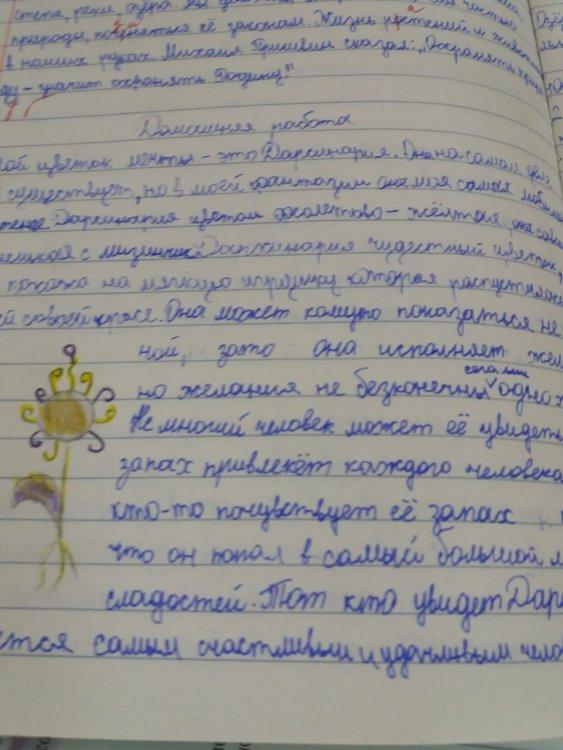 степи, реки, озёра.
природы, подчиняться её законам. Жизнь растений и живот
в наших руках. Михаил Пришвин сказал: „Охранять приро
ду – значит охранять Родину"
Домашняя работа.
ой цветок мечты – это Дарсинария. Она на самом деле
существует, но в моей фантазии она моя самая любима
Дарсинария цветом фиолетово – жёлтая, она
с мизинчик. Дарсинария чудестный цветок,
похожа на мягкую игрушку которая распустилась
ей своей красе. Она может комуто показаться не
ной, зато она исполняет жел
но желания не безконечны одно ж
Не многий человек может её увидеть
запах привлекёт каждого человека
кто-то почувствует её запах
что он попал в самый большой м
сладостей. Тот кто увидет Дар
ется самым счастливым и удачливым чело